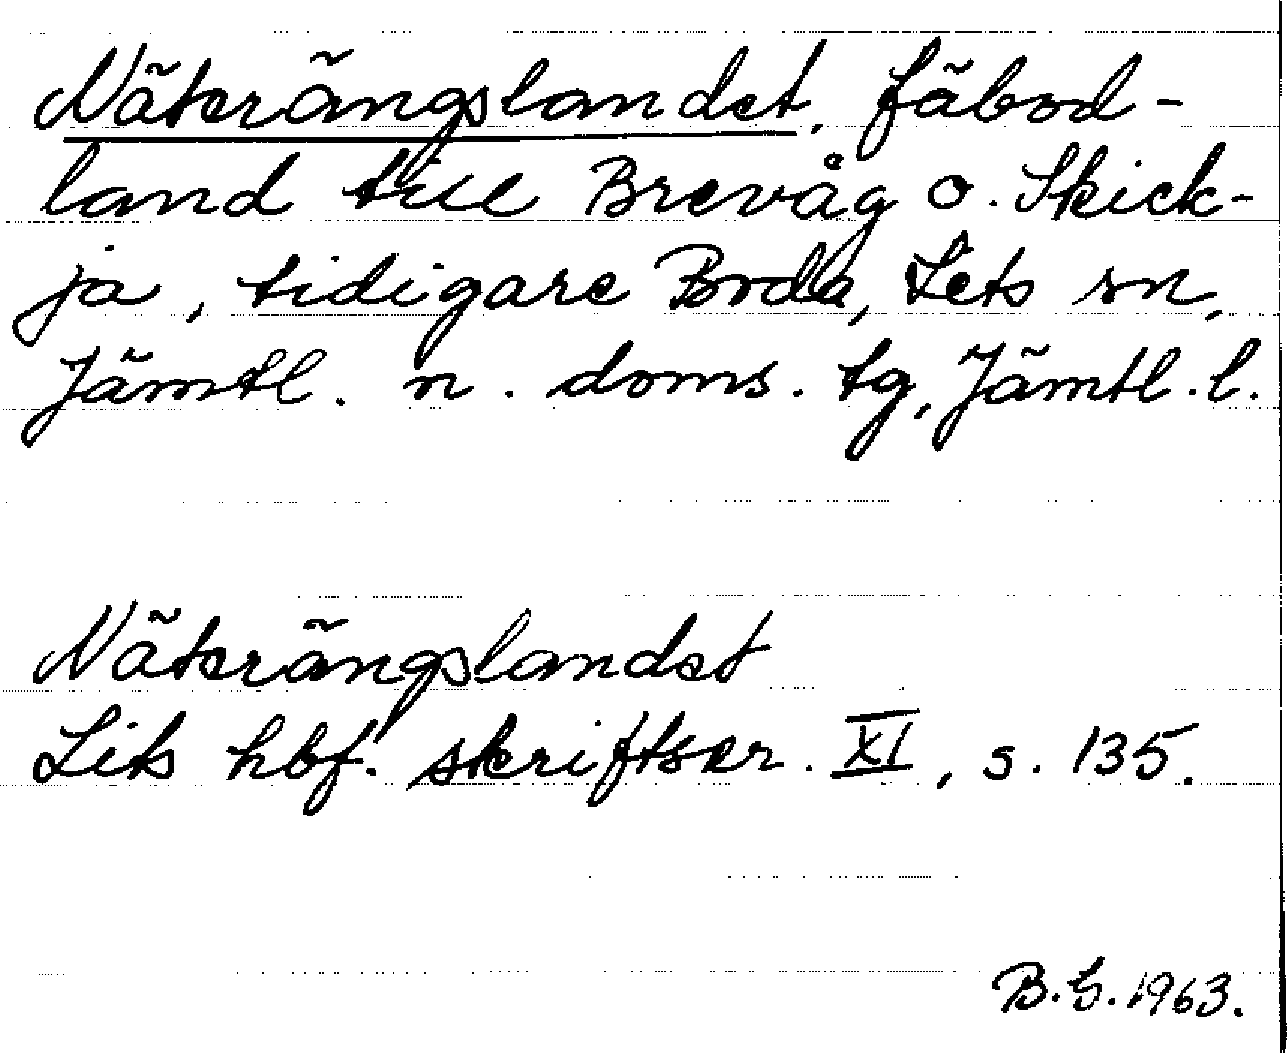 Näterängslandet, fäbod-
land till Brevåg o. Skick-
ja, tidigare Boda, Lets sn,
Jämtl. n. doms. tg, Jämtl. l.
Näterängslandet
Lits hbf. skriftser. XI, s. 135.
B.G. 1963.